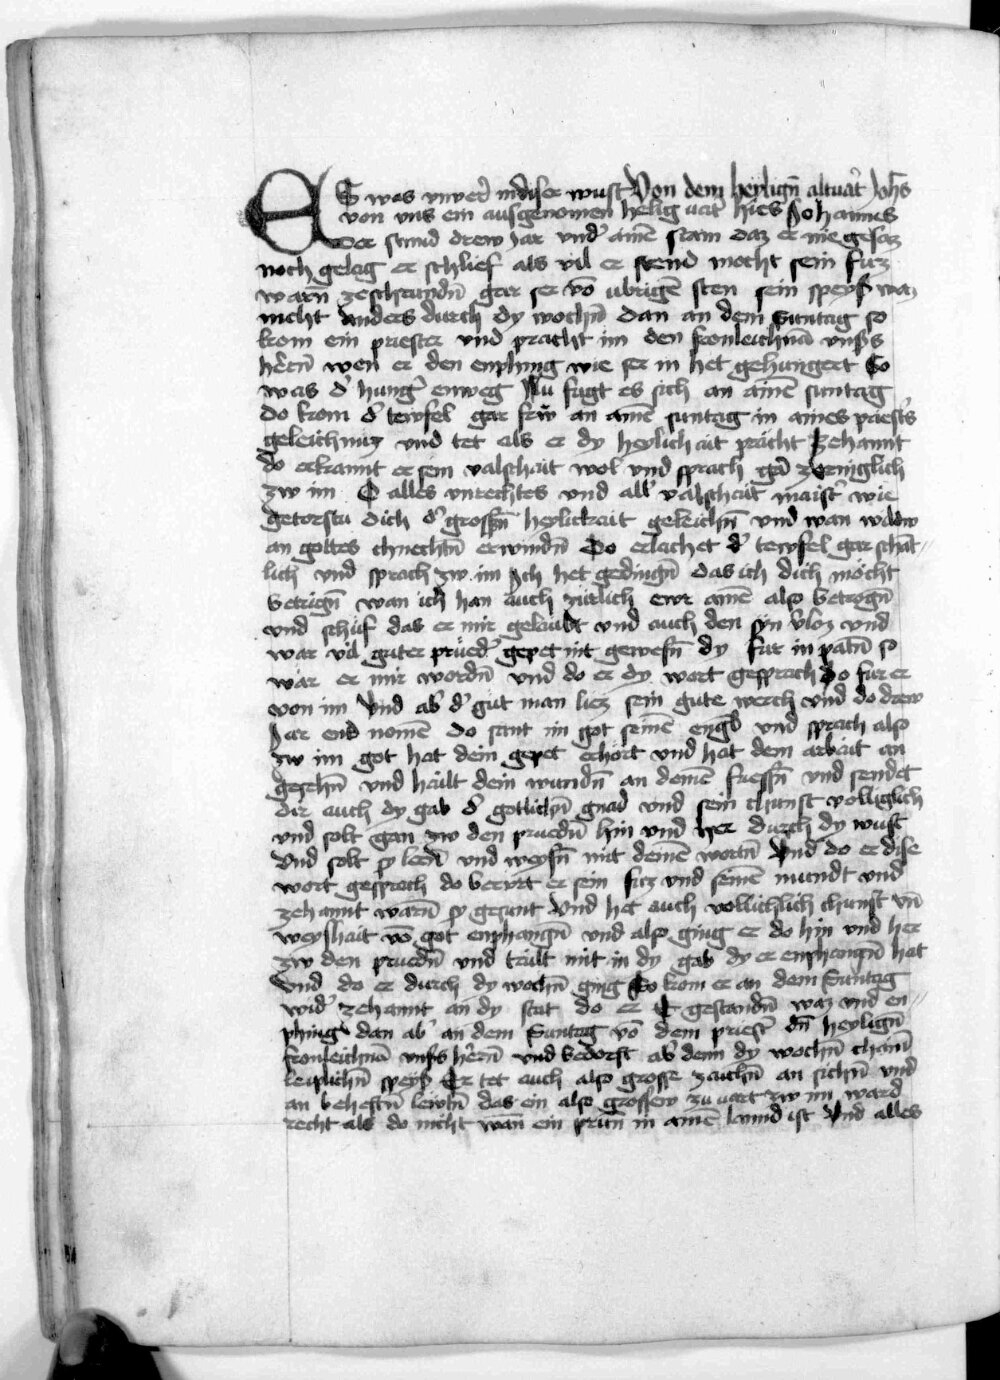 ES was unverr in diser wust Von dem heyligñ altvat͛ Joh̃s
von uns ein ausgenomen heilig vat͛ hies Johannes
Der stund drew Jar und͛ aineͫ stam daz er nie gesaz
noch gelag er schlief als vil er stend mocht sein fuz
warñ zeschrundñ gar ser võ ubrigẽ sten sein speyß waz
nicht anders durch dy wochñ dan an dem Suntag so
krom ein priester und pracht im den fronleichnã unsỹs
hẽrñ wen er den enphing wie ser in het gehungert So
was d͛ hung͛ enweg Nu fugt es sich an ainẽ suntag
do krom d͛ tewfel gar frw an ainẽ suntag in aines priest͛s
geleichnuz und tet als er dy heylichait pracht Zehannt
do erkannt er sein valschait wol und sprach gar zorniglich
zw im O alles unrechtes und all͛ valschait maist͛ wie
getorstu dich d͛ grossñ heylickait geleichñ und wan wildw
an gottes chnechtñ erwindñ Do erlachet d͛ tewfel gar scham̃
lich und sprach zw im Ich het gedingñ das ich dich möcht
betrigñ wan ich han auch zeitlich ewr ainẽ also betrogñ
und schuf das er mir gelaubt und auch den syn v͛loz und
war vil guter prued͛ gepet nit gewesñ dy fur in patñ so
wär er mir wordñ und do er dy wort gesprach Do fur er
von im Und ab͛ d͛ gut man liez sein gute werch und do drew
Jar end nomẽ Do sant im got seinẽ engl und sprach also
zw im got hat dein gepet erhört und hat dein arbait an
gesehñ und hailt dein wundñ an deinẽ fuessñ und sendet
dir auch dy gab d͛ gotlichñ gnad und sein chunst volliglich
und solt gan zw den pruedñ hin und her durch dy wust
Und solt sy lerñ und weysñ mit deinẽ wortñ Und do er dise
wort gesprach do berürt er sein fuz und seinẽ mundt und
zehannt warñ sy gesunt Und het auch vollichlich chunst uñ
weyshait võ got enphangñ und also ging er do hin und her
zw den pruedñ und tailt mit in dy gab dy er enphangñ hat
Und do er durch dy wochñ ging So krom er an dem Suntag
wid͛ zehannt an dy stat do er gestandñ waz und en
phing dan ab͛ an dem Suntag võ dem priest͛ dñ heyligñ
fronleichnã unsỹs hẽrñ und bedorft ab͛ denn dy wochñ chainr̃
leiplichñ speyß Er tet auch also grosse zaichñ an sichñ und
an behestñ lewtñ das ein also grossew zu vart zw im ward
recht als do nicht wañ ein prun in ainẽ lannd ist Und alles